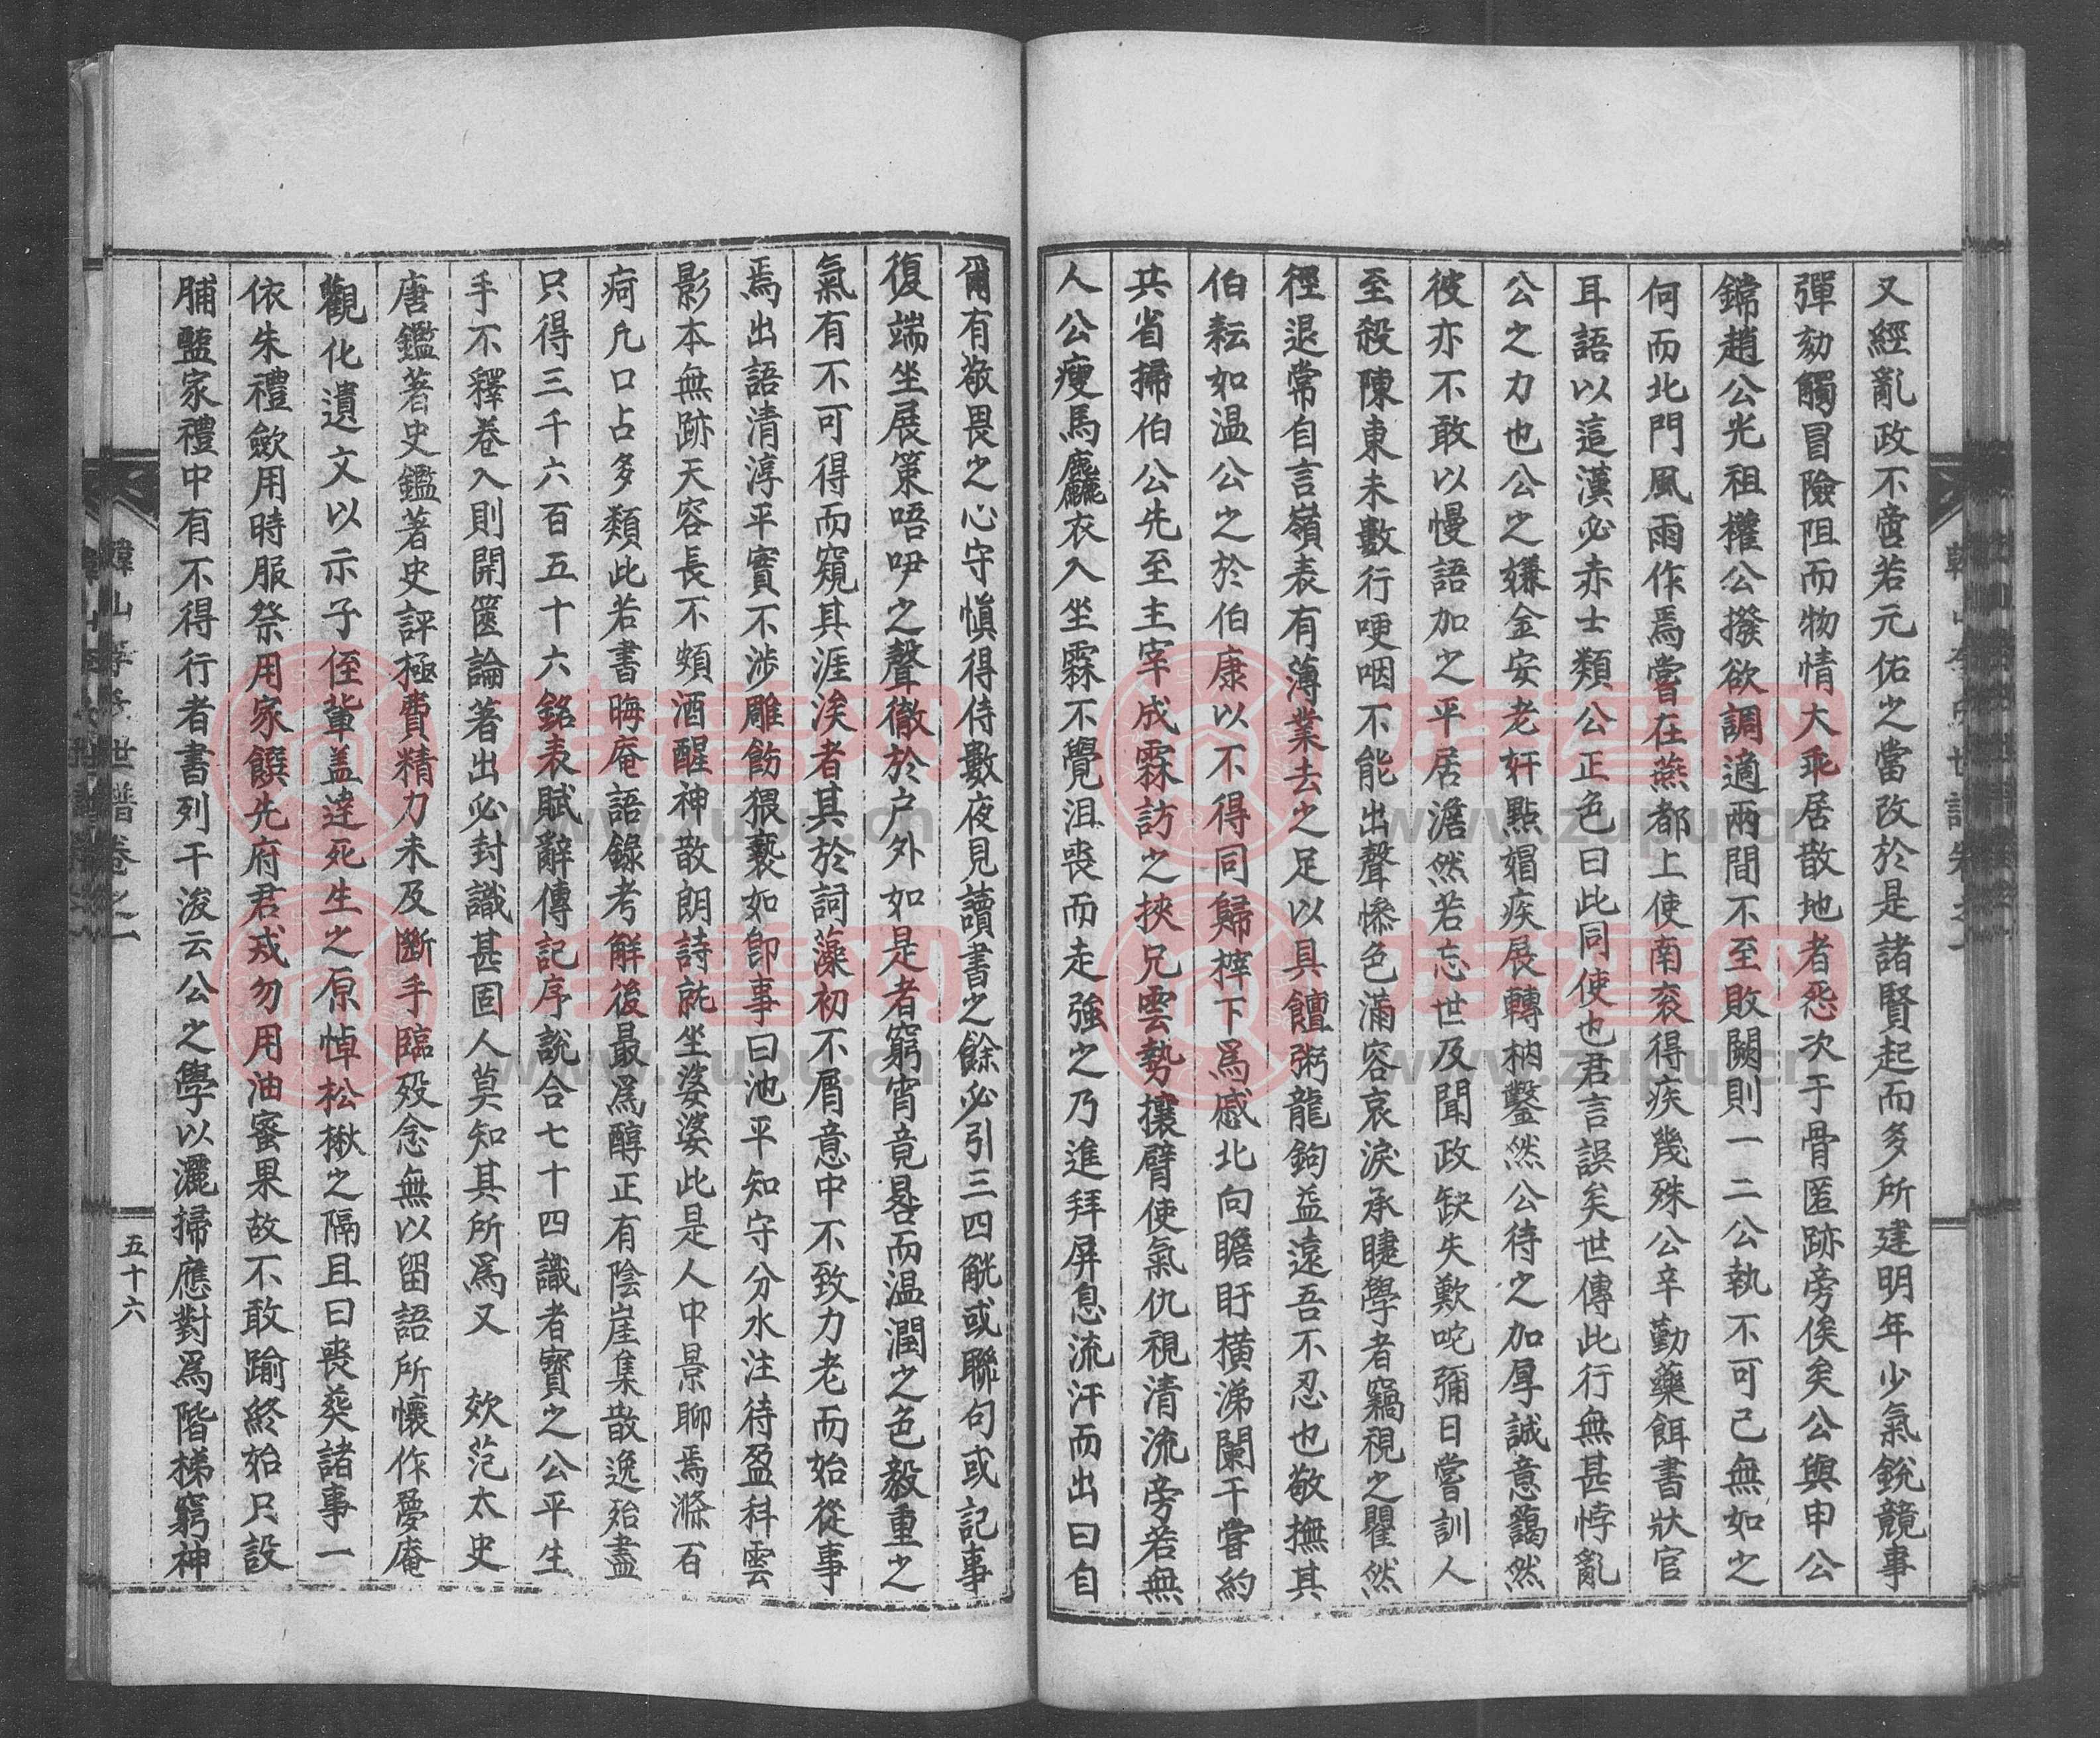 又經亂政不啻若元佑之當改於是諸賢起而多所建明年少氣銳競事
彈劾觸冒險阻而物情大乖居散地者怨次于骨匿跡旁俟矣公與申公
鐺趙公光祖權公撥欲調適兩間不至敗闕則一二公執不可已無如之
何而北門風雨作焉嘗在燕都上使南袞得疾幾殊公辛勤藥餌書狀官
耳語以這漢必赤士類公正色曰此同使也君言誤矣世傳此行無甚悖亂
公之力也公之嫌金安老奸點娼疾展轉枘鑿然公待之加厚誠意藹然
彼亦不敢以慢語加之平居澹然若忘世及聞政缺失歎咤彌日嘗訓人
至殺陳東未數行哽咽不能出聲慘色滿容哀淚承睫學者竊視之瞿然
徑退常自言嶺表有薄業去之足以具饘粥龍鉤益遠吾不忍也敬撫其
伯耘如温公之於伯康以不得同歸梓下爲慼北向瞻盱橫涕闌干嘗約
共省掃伯公先至主宰成霖訪之挾兄雲勢攘臂使氣仇視清流旁若無
人公瘦馬麤衣入坐霖不覺沮喪而走強之乃進拜屏息流汗而出曰自
爾有敬畏之心守愼得侍數夜見讀書之餘必引三四觥或聯句或記事
復端坐展策唔咿之聲徹於户外如是者窮宵竟晷而温潤之色毅重之
氣有不可得而窺其涯涘者其於詞藻初不屑意中不致力老而始從事
焉出語清淳平實不涉雕飭猥褻如卽事曰池平知守分水注待盈科雲
影本無跡天容長不頗酒醒神散朗詩就坐婆娑此是人中景聊焉滌百
疴凡口占多類此若書晦庵語錄考解後最爲醇正有陰崖集散逸殆盡
只得三千六百五十六銘表賦辭傳記序説合七十四識者寶之公平生
手不釋卷入則開篋論著出必封識甚固人莫知其所爲又　欸范太史
唐鑑著史鑑著史評極費精力未及斷手臨歿念無以留語所懷作夢庵
觀化遺文以示子侄輩盖達死生之原悼松楸之隔且曰喪葬諸事一
依朱禮斂用時服祭用家饌先府君戎勿用油蜜果故不敢踰終始只設
脯䀋家禮中有不得行者書列干浚云公之學以灑掃應對爲階梯窮神
韓山李氏世譜卷之一
五十六